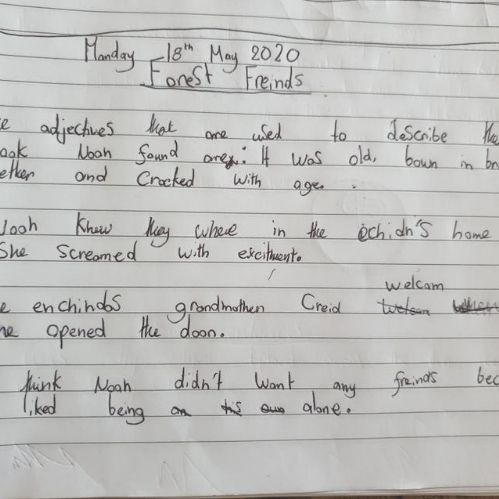 Manday 18th May 2020
Forest Freinds
adjectives that are used to describe the
Noah found are: It was old, bown in
and Cracked with age.
Noah Knew they where in the echidn's home
She screamed with excitment.
enchindas grandmother Creid welcam
opened the door.
think Noah didn't want any freinds bec
liked being alone.